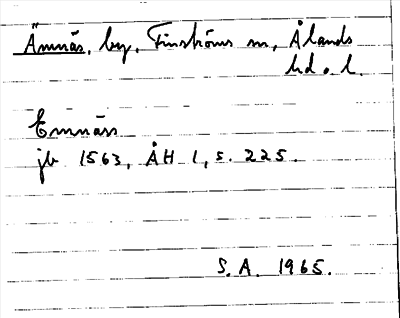 Ämnäs, by, Finströms sn, Ålands
hd o. l.
Emnäss
jb 1563, ÅH 1, s. 225.
S.A. 1965.